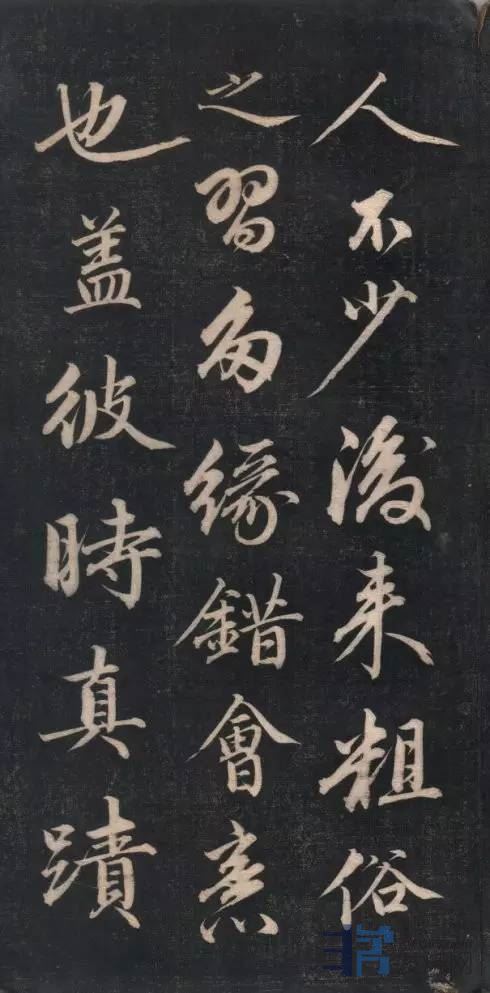 人不少後来粗俗
之習多緣錯會意
也蓋彼時真蹟